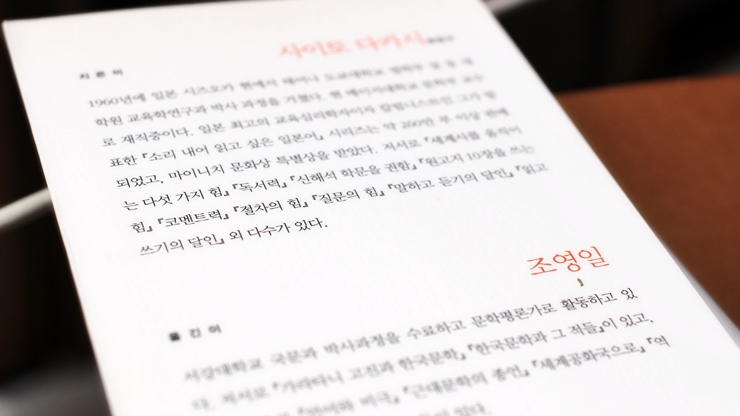 사이토 다카시
지은이
1960년에 일본 시즈오카 현에서 태어나 도쿄대학교 법학부 및 동 대
학원 교육학연구과 박사 과정을 거쳤다. 현 메이지대학교 문학부 교수
로 재직중이다. 일본 최고의 교육심리학자이자 칼럼니스트인 그가 발
표한 『소리 내어 읽고 싶은 일본어』 시리즈는 약 260만 부 이상 판매
되었고, 마이니치 문화상 특별상을 받았다. 저서로 『세계사를 움직이
는 다섯 가지 힘』 『독서력』 『신해석 학문을 권함』 『원고지 10장을 쓰는
힘』 『코멘트력』 『절차의 힘』 『질문의 힘』 『말하고 듣기의 달인』 『읽고
쓰기의 달인』 외 다수가 있다.
조영일
옮긴이
서강대학교 국문과 박사과정을 수료하고 문학평론가로 활동하고 있
다. 저서로 『가라타니 고진과 한국문학』 『한국문학과 그 적들』이 있고,
『언어와 비극』 『근대문학의 종언』 『세계공화국으로』 『역
있다.